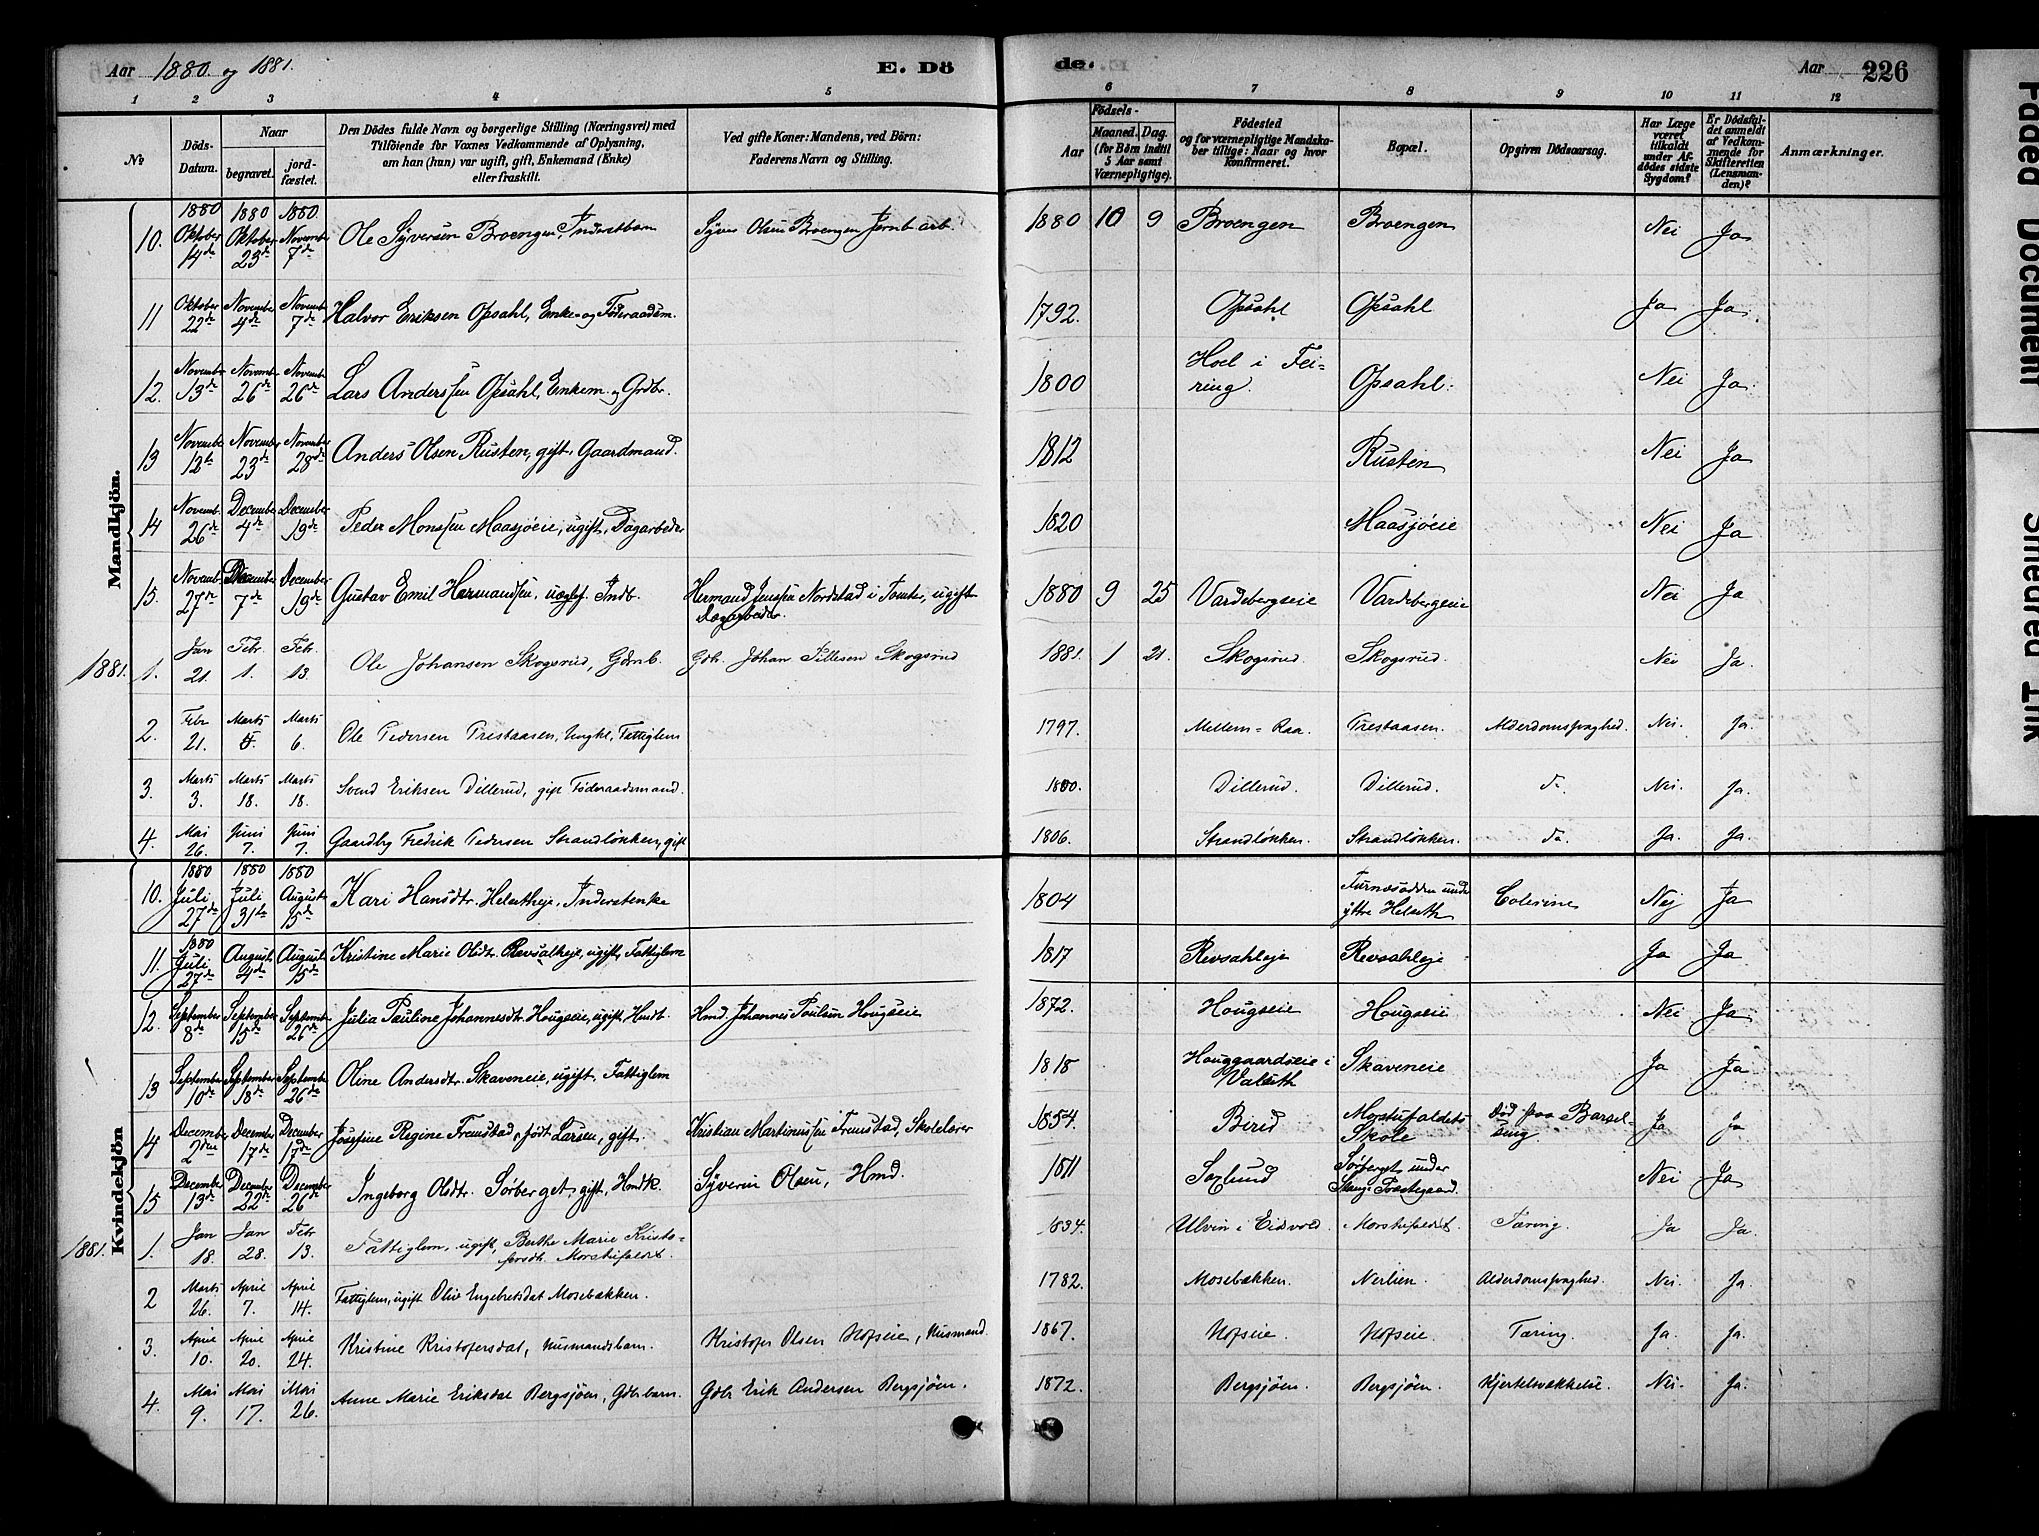 Aar 1880. og 1881. E. Dö de. Aar 226
1 2 3 4 5 6 7 8 9 10 11 12
No Döds-Datum. Naar begravet. jord-fæstet. Den Dödes fulde Navn og borgerlige Stilling (Næringsvei) med Tilföiende for Voxnes Vedkommende af Oplysning, om han (hun) var ugift, gift, Enkemand (Enke) eller fraskilt. Ved gifte Koner: Mandens, ved Börn: Faderens Navn og Stilling. Födsels- Aar Maaned. Dag. (for Börn indtil 5 Aar samt Værnepligtige). Födested og for værnepligtige Mandskaber tillige: Naar og hvor konfirmeret. Bopæl. Opgiven Dödsaarsag. Har Læge været tilkaldt under Afdödes sidste Sygdom? Er Dödsfaldet anmeldt af Vedkommende for Skifteretten (Lensmanden)? Anmærkninger.
Mandkjön.
10. 1880 Oktober 14de 1880 Oktober 23de 1880. November 7de Ole Syversen Broengen, Inderstbarn Syver Olsen Broengen Jernb arb. 1880 10 9 Broengen Broengen Nei Ja
11 Oktober 22de November 4de November 7de Halvor Eriksen Opsahl, Enke- og Föderaadsm. 1792. Opsahl Opsahl Ja Ja.
12. November 13de Novemb 26de Novemb 26de Lars Anderssen Opsahl, Enkem. og Grdbr. 1800 Hoel i Feiring. Opsahl. Nei Ja.
13 November 12te November 23de November 28de Anders Olsen Rusten, gift, Gaardmand. 1812 Rusten Nei Ja
14 Novemb. 26de December 4de December 19de Peder Monssen Maasjöeie, ugift, Dagarbeder 1820 Maasjöeie Nei Ja
15. Novemb. 27de December 7de December 19de Gustav Emil Hermandsen, Indb. Hermand Jensen Nordstad i Tomter, ugift Dagarbeder. 1880 9 25 Vardebergseie Vardebergseie Nei Ja
1881. 1. Jan 21. Febr. 1. Febr. 13. Ole Johansen Skogsrud, Gdmb. Gdbr. Johan Pillesen Skogsrud 1881. 1 21. Skogsrud. Skogsrud. Nei Ja.
2. Febr 21. Marts 5. Marts 6. Ole Pedersen Præstaasen, Ungkl, Fattiglem 1797. Mellem-Raa. Præstaasen. Alderdomssvaghed. Nei. Ja.
3. Marts 3. Marts 18. Marts 18. Svend Eriksen Dillerud, gift Föderaadsmand. 1800. Dillerud. Dillerud. do. Nei. Ja.
4. Mai 26. Juni 7. Juni 7. Gaardbr Fredrik Pedersen Strandlökken, gift 1806. Strandlökken. Strandlökken. do. Ja. Ja.
Kvindekjön
10. 1880 Juli 27de 1880 Juli 31te 1880 August 15de Kari Hansdtr. Helsetheje, Inderstenke 1804 Furnesodden under ytre Helseth Colerine Nej Ja
11. 1880 Juli 27de August 4de August 15de Kristine Marie Olsdtr. Revsalheje, ugift, Fattiglem 1817 Revsahleje Revsahleje Ja Ja
12. September 8de September 15de Septemb 26de Julia Pauline Johannesdtr. Hougseie, ugift, Hmdb. Hmd. Johannes Poulsen Hougseie 1872. Hougseie Hougseie Nei Ja
13 September 10de September 18de September 26de Oline Andersdtr. Skaveneie, ugift, Fattiglem 1818 Houggaardseie i Valseth Skaveneie Ja Ja
14 December 2den December 17de December 17de Josefine Regine Fremstad, född Larsen, gift. Kristian Martinussen Fremstad, Skolelærer 1854. Birid Morstufaldets Skole Död paa Barselseng Ja Ja
15 December 13de December 22de December 26de Ingeborg Olsdtr. Sörberget, gift, Hmdk. Syverin Olsen, Hmd. 1811 Saxlund Sörberget under Stange Præstegaard. Nei Ja
1881. 1. Jan 18. Jan 28. Febr 13. Fattiglem, ugift, Berthe Marie Kristofersdtr. Morstufaldet. 1834. Ulvin i Eidsvold. Morstufaldet. Tæring. Ja Ja.
2 Marts 26. April 7. April 14. Fattiglem, ugift Olive Engebretsdat Mosebækken. 1782. Mosebækken. Nerlien. Alderdomssvaghed. Nei. Ja.
3. April 10. April 20. April 24. Kristine Kristofersdat, Husmandsbarn. Kristofer Olsen Hofseie, Husmand. 1867. Hofseie. Hofseie. Tæring. Ja. Ja.
4. Mai 9. Mai 17. Mai 26. Anne Marie Eriksdat Bergsjöen, Gdbrbarn. Gdbr Erik Andersen Bergsjöen. 1872. Bergsjöen. Bergsjöen. Hjertelsvækkelse. Nei. Ja.
Faded Document
Smeared Ink